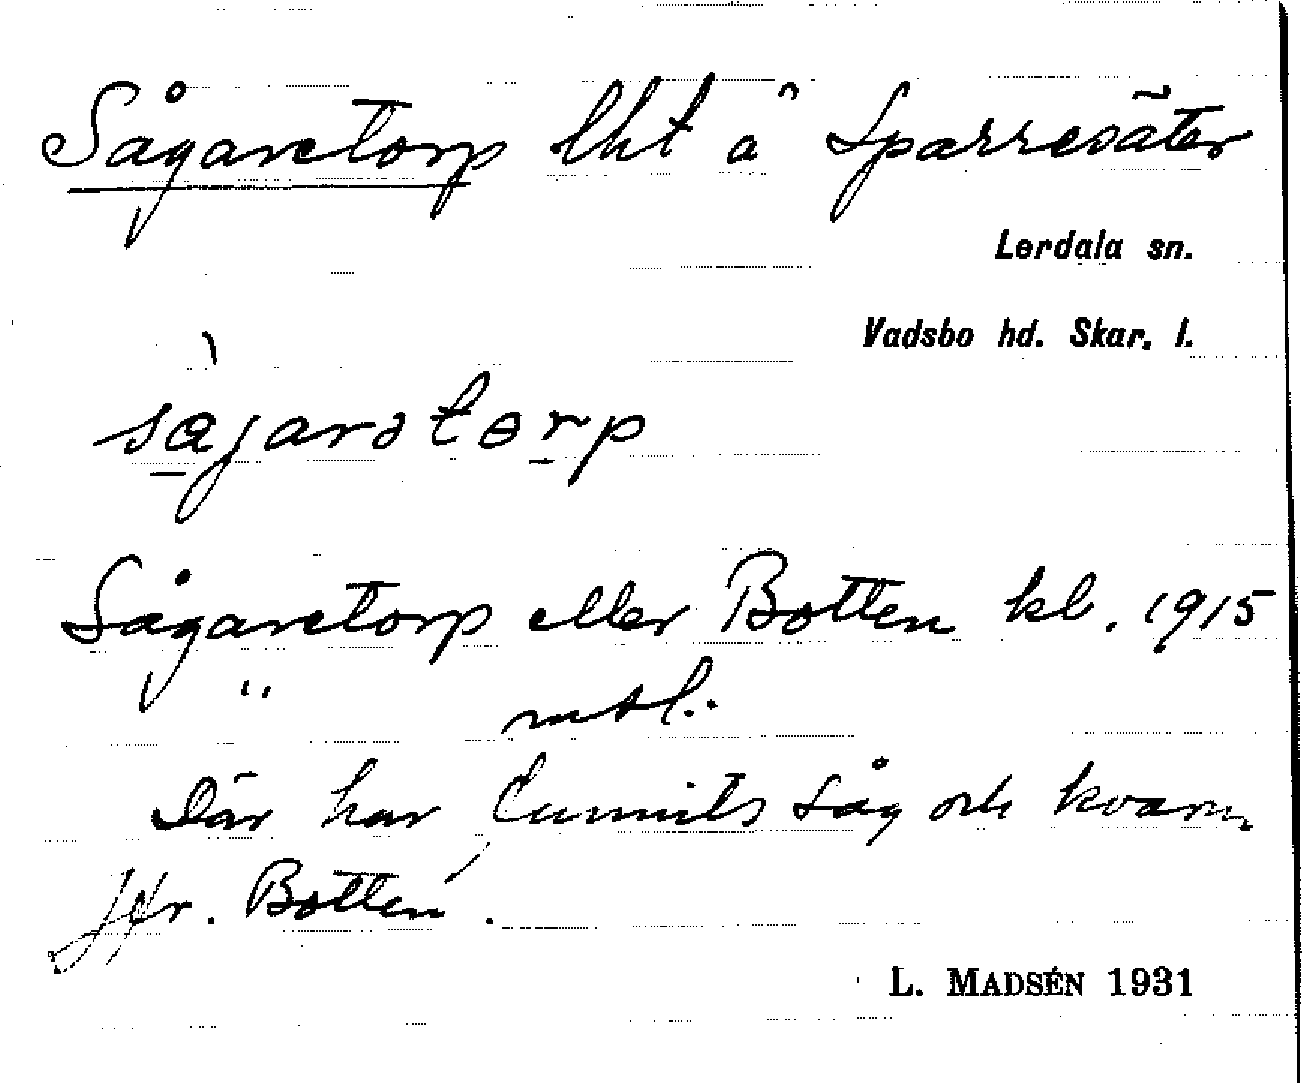 Sågaretorp lht å Sparresäter
Lerdala sn.
Vadsbo hd. Skar. l.
sàjarətorp
Sågaretorp eller Botten kl. 1915
" mtl.:
Där har funnits såg och kvarn
Jfr. Botten.
L. MADSÉN 1931